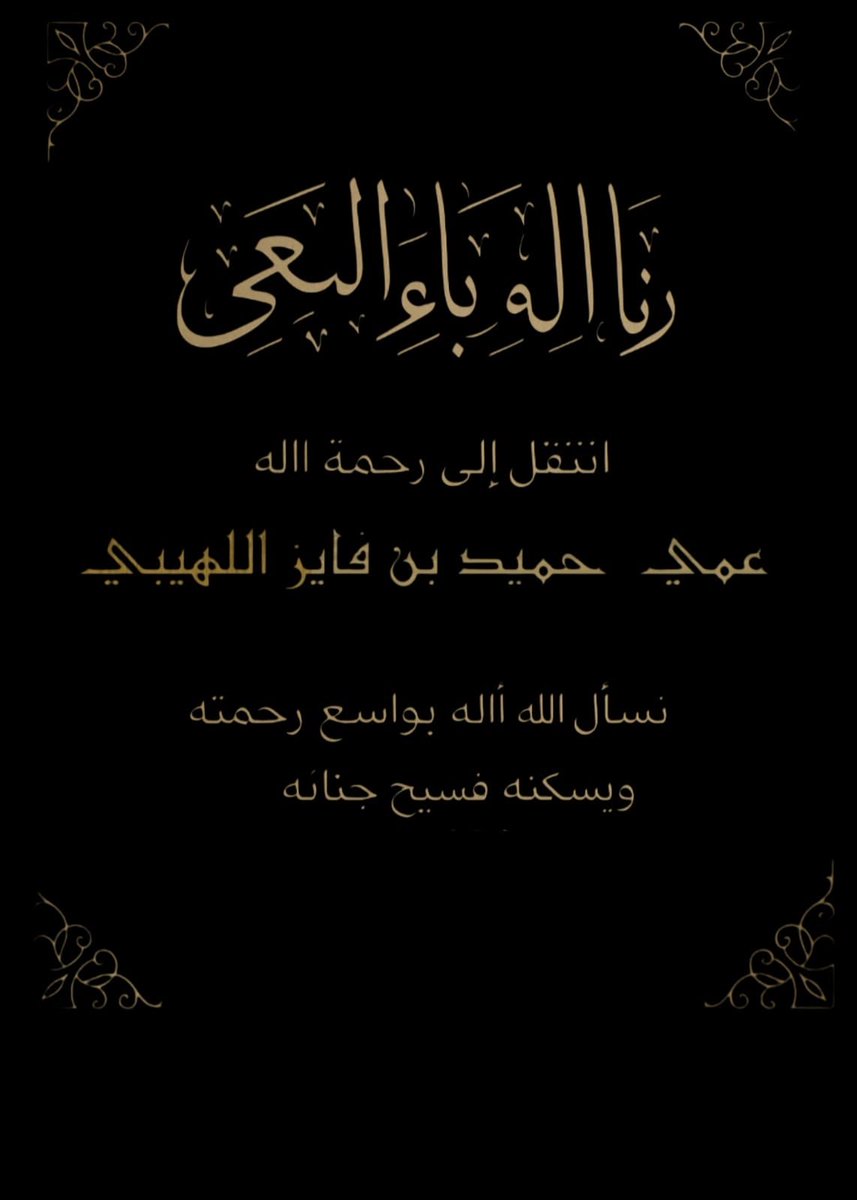 رنا اله باء البعي
انتقل إلى رحمة االه
عمي حميد بن فايز اللهيبي
نسأل الله أاله بواسع رحمته
ويسكنه فسيح جناته